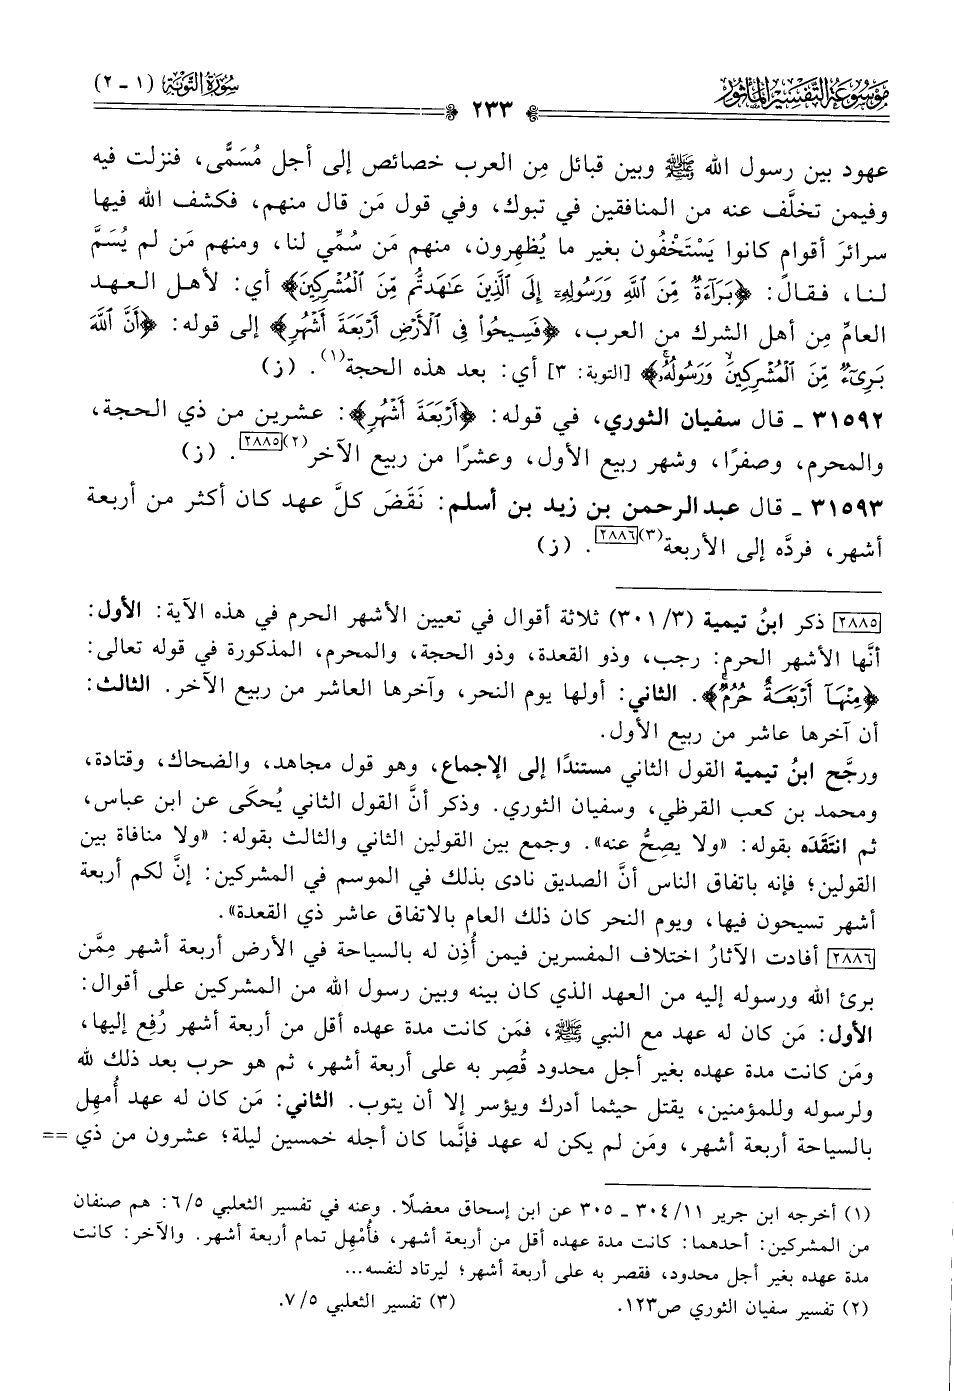 موسوعة التفسير المأثور
سورة التوبة (١ - ٢)
٢٣٣
عهود بين رسول الله ﷺ وبين قبائل مِن العرب خصائص إلى أجل مُسَمًّى، فنزلت فيه
وفيمن تخلَّف عنه من المنافقين في تبوك، وفي قول مَن قال منهم، فكشف الله فيها
سرائرَ أقوام كانوا يَسْتَخْفُون بغير ما يُظهِرون، منهم مَن سُمِّي لنا، ومنهم مَن لم يُسَمَّ
لنا، فقال: ﴿بَرَآءَةٌ مِّنَ ٱللَّهِ وَرَسُولِهِۦٓ إِلَى ٱلَّذِينَ عَـٰهَدتُّم مِّنَ ٱلْمُشْرِكِينَ﴾ أي: لأهل العهد
العامِّ مِن أهل الشرك من العرب، ﴿فَسِيحُوا۟ فِى ٱلْأَرْضِ أَرْبَعَةَ أَشْهُرٍ﴾ إلى قوله: ﴿أَنَّ ٱللَّهَ
بَرِىٓءٌ مِّنَ ٱلْمُشْرِكِينَ ۙ وَرَسُولُهُۥ﴾ [التوبة: ٣] أي: بعد هذه الحجة(١). (ز)
٣١٥٩٢ - قال سفيان الثوري، في قوله: ﴿أَرْبَعَةَ أَشْهُرٍ﴾: عشرين من ذي الحجة،
والمحرم، وصفرًا، وشهر ربيع الأول، وعشرًا من ربيع الآخر(٢)[٢٨٨٥]. (ز)
٣١٥٩٣ - قال عبدالرحمن بن زيد بن أسلم: نَقَضَ كلَّ عهد كان أكثر من أربعة
أشهر، فردَّه إلى الأربعة(٣)[٢٨٨٦]. (ز)
[٢٨٨٥] ذكر ابنُ تيمية (٣/ ٣٠١) ثلاثة أقوال في تعيين الأشهر الحرم في هذه الآية: الأول:
أنَّها الأشهر الحرم: رجب، وذو القعدة، وذو الحجة، والمحرم، المذكورة في قوله تعالى:
﴿مِنْهَآ أَرْبَعَةٌ حُرُمٌ﴾. الثاني: أولها يوم النحر، وآخرها العاشر من ربيع الآخر. الثالث:
أن آخرها عاشر من ربيع الأول.
ورجَّح ابنُ تيمية القول الثاني مستندًا إلى الإجماع، وهو قول مجاهد، والضحاك، وقتادة،
ومحمد بن كعب القرظي، وسفيان الثوري. وذكر أنَّ القول الثاني يُحكَى عن ابن عباس،
ثم انتَقَدَه بقوله: «ولا يصِحُّ عنه». وجمع بين القولين الثاني والثالث بقوله: «ولا منافاة بين
القولين؛ فإنه باتفاق الناس أنَّ الصديق نادى بذلك في الموسم في المشركين: إنَّ لكم أربعة
أشهر تسيحون فيها، ويوم النحر كان ذلك العام بالاتفاق عاشر ذي القعدة».
[٢٨٨٦] أفادت الآثارُ اختلاف المفسرين فيمن أُذِن له بالسياحة في الأرض أربعة أشهر مِمَّن
برئ الله ورسوله إليه من العهد الذي كان بينه وبين رسول الله من المشركين على أقوال:
الأول: مَن كان له عهد مع النبي ﷺ، فمَن كانت مدة عهده أقل من أربعة أشهر رُفِع إليها،
ومَن كانت مدة عهده بغير أجل محدود قُصِر به على أربعة أشهر، ثم هو حرب بعد ذلك لله
ولرسوله وللمؤمنين، يقتل حيثما أدرك ويؤسر إلا أن يتوب. الثاني: مَن كان له عهد أُمهِل
بالسياحة أربعة أشهر، ومَن لم يكن له عهد فإنَّما كان أجله خمسين ليلة؛ عشرون من ذي ==
(١) أخرجه ابن جرير ١١/ ٣٠٤ - ٣٠٥ عن ابن إسحاق معضلًا. وعنه في تفسير الثعلبي ٦/٥: هم صنفان
من المشركين: أحدهما: كانت مدة عهده أقل من أربعة أشهر، فأُمْهِل تمام أربعة أشهر. والآخر: كانت
مدة عهده بغير أجل محدود، فقصر به على أربعة أشهر؛ ليرتاد لنفسه...
(٢) تفسير سفيان الثوري ص١٢٣. (٣) تفسير الثعلبي ٧/٥.